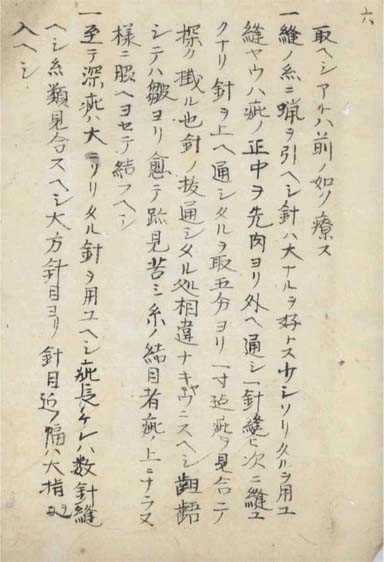 六
取ヘシアトハ前ノ如ク療ス
一縫ノ糸ニ蝋ヲ引ヘシ針ハ大ナルヲ好トス少シソリタルヲ用ユ
縫ヤウハ疵ノ正中ヲ先肉ヨリ外ヘ通シ一針縫ヒ次ニ縫ユ
クナリ針ヲ上ヘ通シタルヲ取五分ヨリ一寸迄疵ヲ見合ニテ
探ク掛ル也針ノ抜通シタル処相違ナキヤウニスヘシ齟齬
シテハ皺ヨリ愈テ跡見苦シ糸ノ結目者疵上ニナラヌ
様ニ脇ヘヨセテ結フヘシ
一至テ深疵ハ大ソリタル針ヲ用ユヘシ疵長ケレハ数針縫
ヘシ糸類見合スヘシ大方針目ヨリ針目迄ノ幅ハ大指
入ヘシ